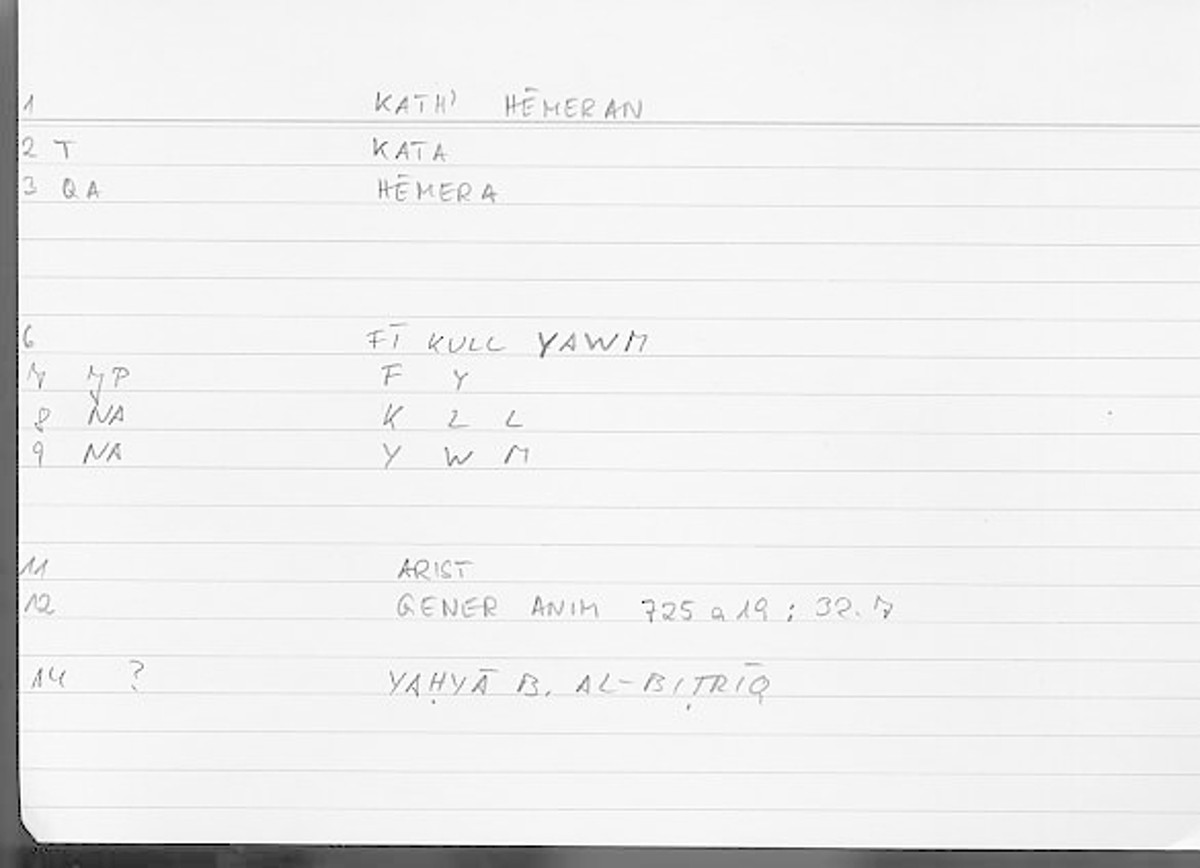 1 KATH' HĒMERAN
2 T KATA
3 QA HĒMERA
6 FĪ KULL YAWM
7 7P F Y
8 NA K L L
9 NA Y W M
11 ARIST
12 GENER ANIM 725 a 19 ; 32.7
14 ? YAḤYĀ B. AL-BIṬRĪQ